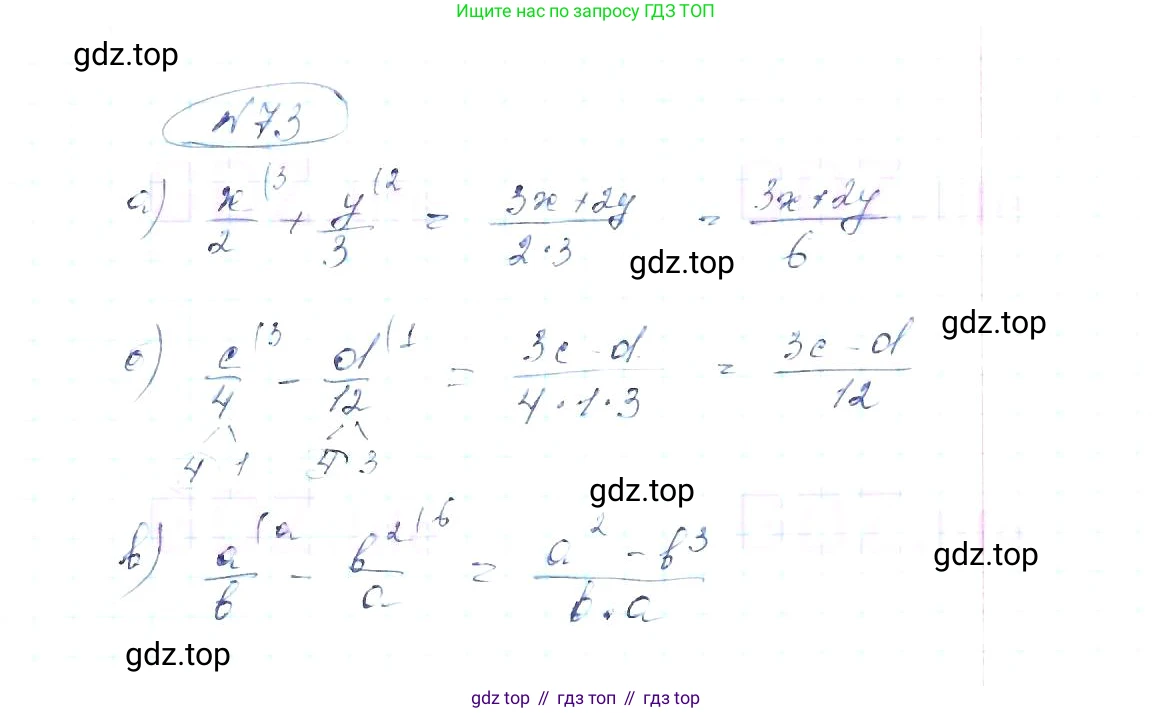 Ищите нас по запросу ГДЗ ТОП
gdz.top
№73
а) x/2 (3 + y/3 (2 = (3x+2y)/(2·3) = (3x+2y)/6
gdz.top
gdz.top
б) c/4 (3 - d/12 (1 = (3c-d)/(4·1·3) = (3c-d)/12
4 1 4 3
gdz.top
в) a/b (a - b²/a (b = (a²-b³)/(b·a)
gdz.top
gdz.top
gdz top // гдз топ // гдз top